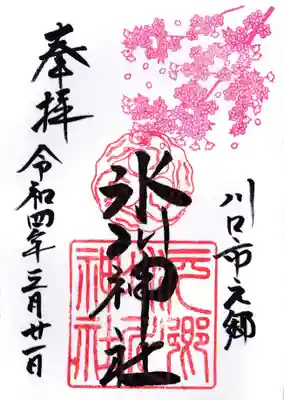 川口市元郷
氷川神社
奉拝
令和四年三月廿一日
元郷
神社